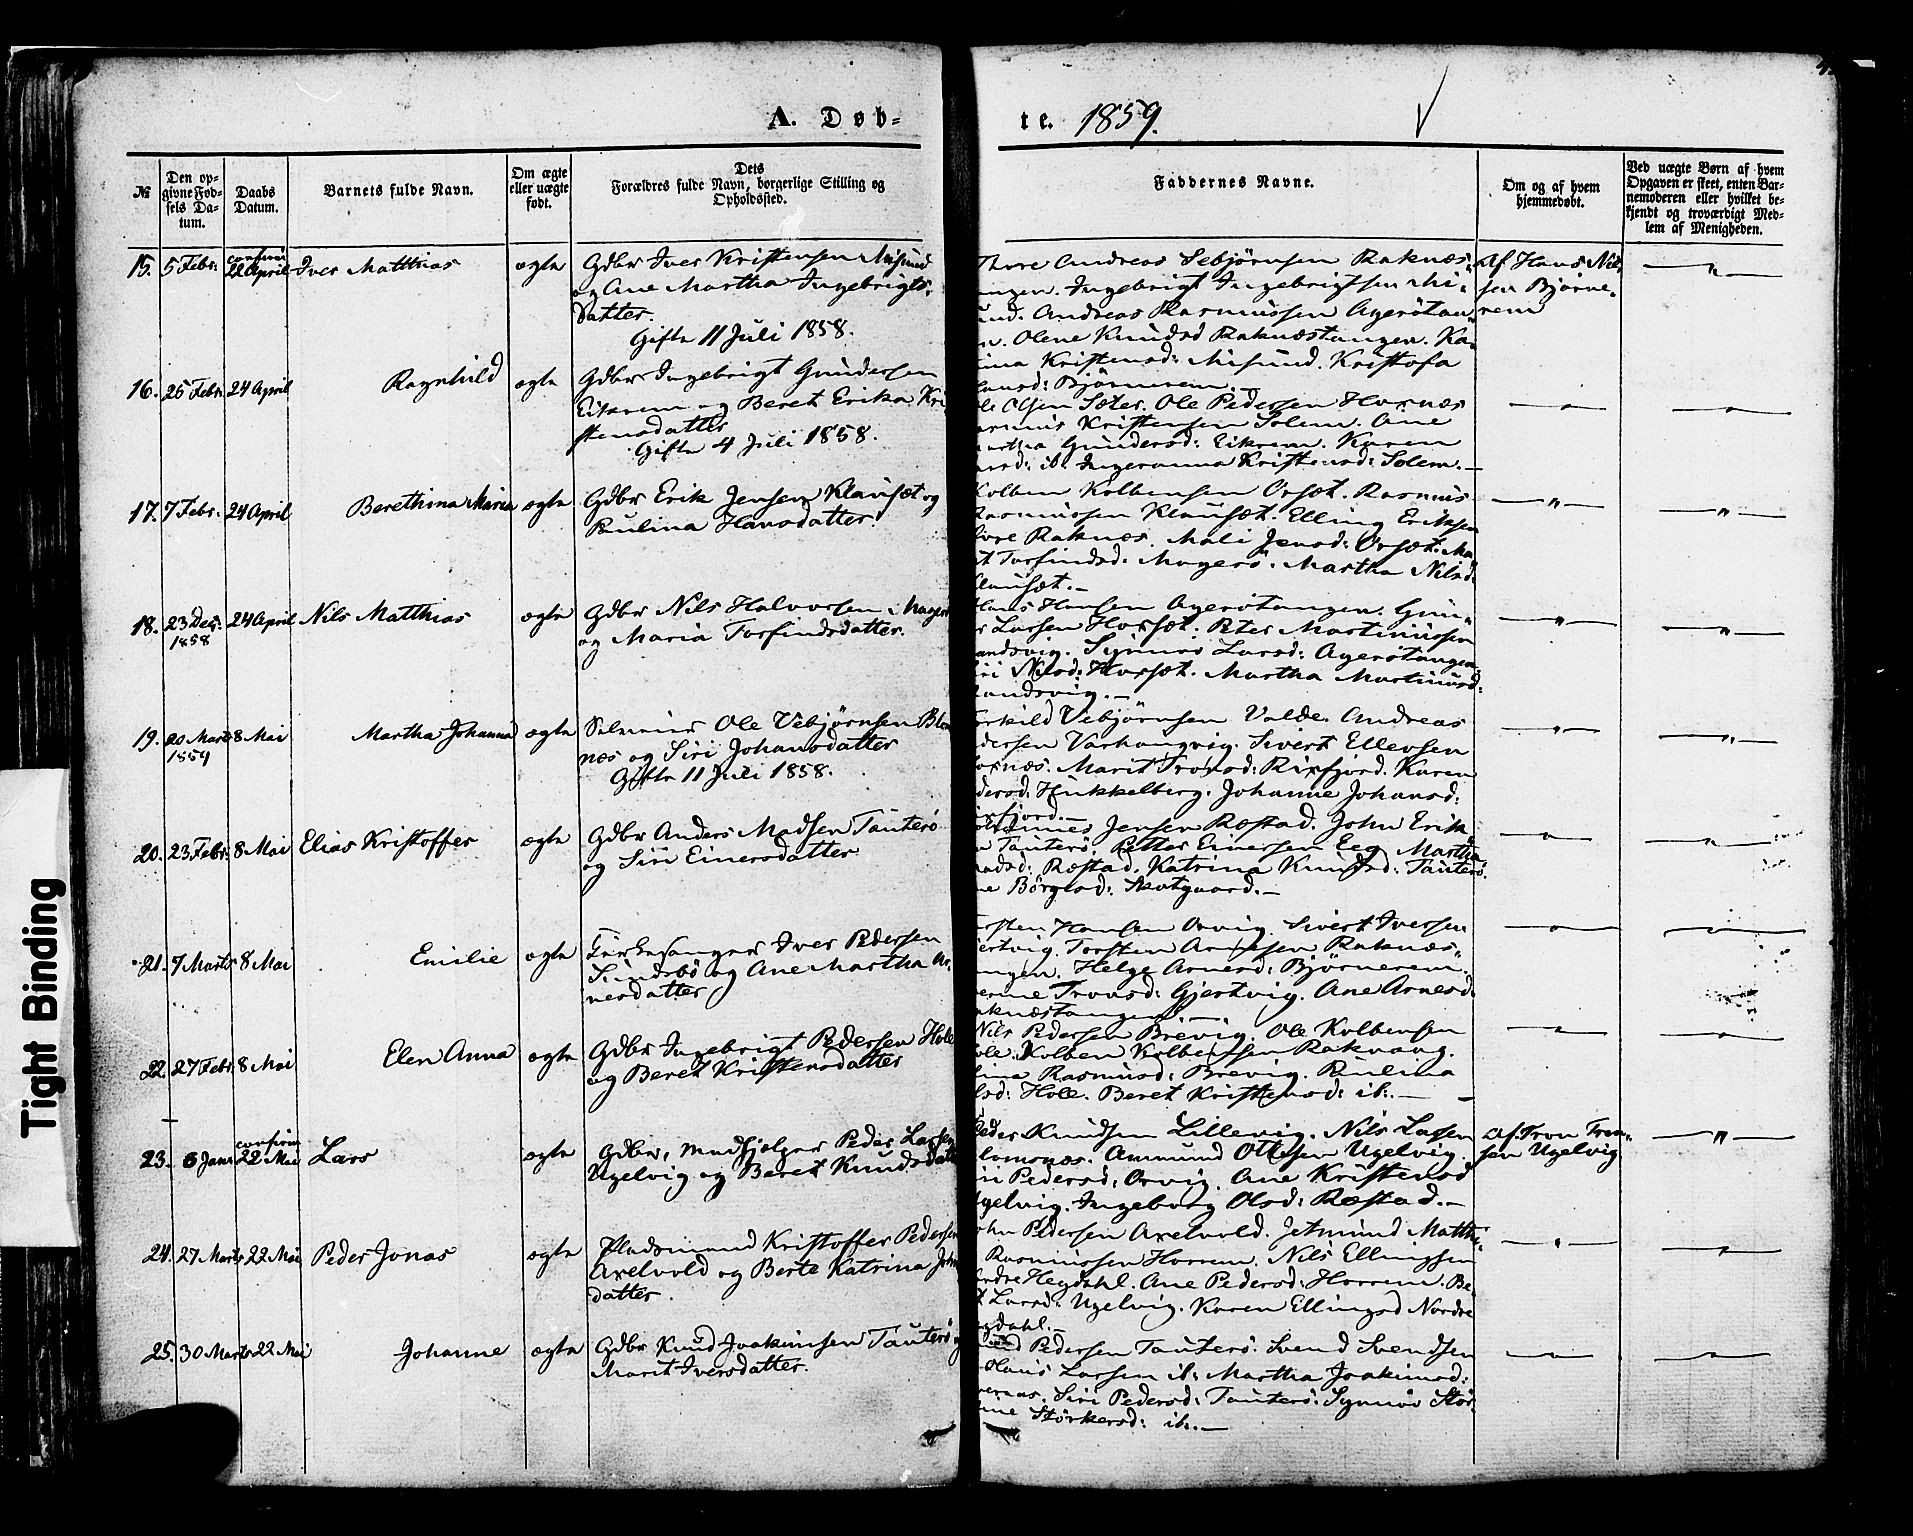 A. Døb-
te. 1859.
№
Den op-
givne Fød-
sels Da-
tum.
Daabs
Datum.
Barnets fulde Navn.
Om ægte
eller uægte
født.
Dets
Forældres fulde Navn, borgerlige Stilling og
Opholdssted.
Faddernes Navne.
Om og af hvem
hjemmedøbt.
Ved uægte Børn af hvem
Opgaven er skeet, enten Bar-
nemoderen eller hvilket be-
kjendt og troværdigt Med-
lem af Menigheden.
15. 5 Febr. confirm 22 April Iver Matthias ægte
Gdbr Iver Kristensen Misund
og Ane Martha Ingebrigts-
datter.
Gifte 11 Juli 1858.
Thore Andreas Sebjørnsen Raknæs-
Ingebrigt Ingebrigtsen Mi-
Andreas Rasmussen Agerøtan-
Olene Knudsd Raknæstangen. Ka-
Kristensd: Misund. Kristofa
Bjørnerem.
Af Hans Nil-
sen Bjørne-
rem
16. 25 Febr. 24 April Ragnhild ægte
Gdbr Ingebrigt Gundersen
Eikrem og Beret Erika Kri
stensdatter
Gifte 4 Juli 1858.
Olsen Sæter. Ole Pedersen Hornæs
Kristensen Solem. Ane
Gundersd: Eikrem. Karen
ib. Ingeranna Kristensd: Solem.
17. 7 Febr. 24 April Berethina Maria ægte
Gdbr Erik Jensen Klausæt og
Paulina Hansdatter.
Kolben Kolbensen Orsæt. Rasmus
Rasmussen Klausæt. Elling Eriksen
Raknæs. Mali Jensd: Orsæt. Ma-
Torfindsd: Magerø. Martha Nilsd:
Klausæt.
18. 23 Dec. 1858 24 April Nils Matthias ægte
Gdbr Nils Halvorsen Magerø
og Maria Torfindsdatter.
Hans Hansen Agerøtangen. Gun-
Larsen Horsæt. Peter Martinussen
Synnøv Larsd: Agerøtangen.
Nilsd: Horsæt. Martha Martinusd:
19. 20 Marts 1859 8 Mai Martha Johanna ægte
Ole Vebjørnsen
næs og Siri Johansdatter
Gifte 11 Juli 1858.
Vebjørnsen Valde. Andreas
Sivert Ellevsen
Marit Tronsd: Rirfjord. Karen
Hukkelberg. Johanne Johansd:
20. 23 Febr. 8 Mai Elias Kristoffer ægte
Gdbr Anders Madsen Tauterø
og Siri Einersdatter
Jensen Ræstad. John Erik-
Tauterø. Petter Einersen Eeg. Martha
Ræstad. Katrina Knudsd: Tauterø.
Børgesd:
21. 7 Marts 8 Mai Emilie ægte
Kirkesanger Iver Pedersen
Sundsbø og Ane Martha Ar-
nesdatter
Hansen Orvig. Sivert Iversen
Torsten Arnesen Raknæs-
Helge Arnesd: Bjørnerem.
Tronsd: Gjertvig. Ane Arnesd:
22. 27 Febr. 8 Mai Elen Anna ægte
Gdbr Ingebrigt Pedersen Hole
og Beret Kristensdatter
Nils Pedersen Brevig. Ole Kolbensen
Hole. Kolben Kolbensen Raknang.
Rasmusd: Brevig. Paulina
Hole. Beret Kristensd: ib.
23. 6 Janr confirm 22 Mai Lars ægte
Gdbr, medhjelper Peder Larsen
Ugelvig og Beret Knudsdatter
Peder Knudsen Lillevig. Nils Larsen
Ammund Ottesen Ugelvig.
Pedersd: Orvig. Ane Kristensd
Ugelvig. Ingeborg Olsd: Ræstad.
Af Tron Tron-
sen Ugelvig
24. 27 Marts 22 Mai Peder Jonas ægte
Pladsmand Kristoffer Pedersen
Axelvold og Berte Katrina
datter.
Pedersen Axelvold. Jetmund Matthi-
Rasmussen Horrem. Nils Ellingsen
Hegdahl. Ane Pedersd: Horrem. Be-
Larsd: Ugelvig. Karen Ellingsd Nordre
25. 30 Marts 22 Mai Johanne ægte
Gdbr Knud Joakimsen Tauterø
Marit Iversdatter.
Pedersen Tauterø. Svend Svendsen
Larsen ib: Martha Joakimsd:
Siri Pedersd: Tauterø. Synnøv Stør-
Størkersd: ib.
Tight Binding